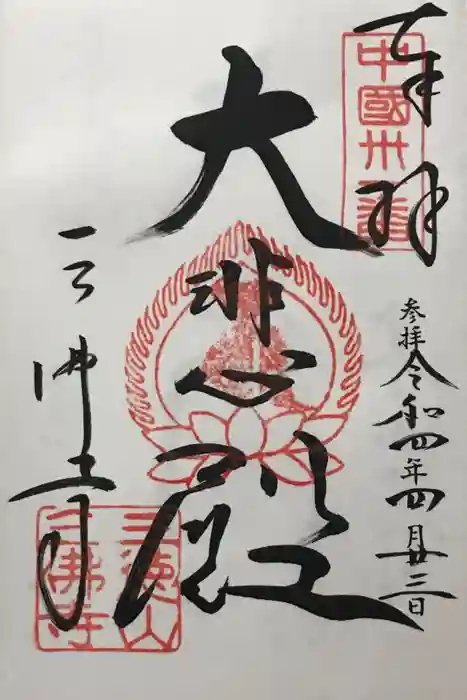 奉拝
中國卅一番
参拝令和四年四月廿三日
大悲殿
三佛寺
三徳山
三佛寺